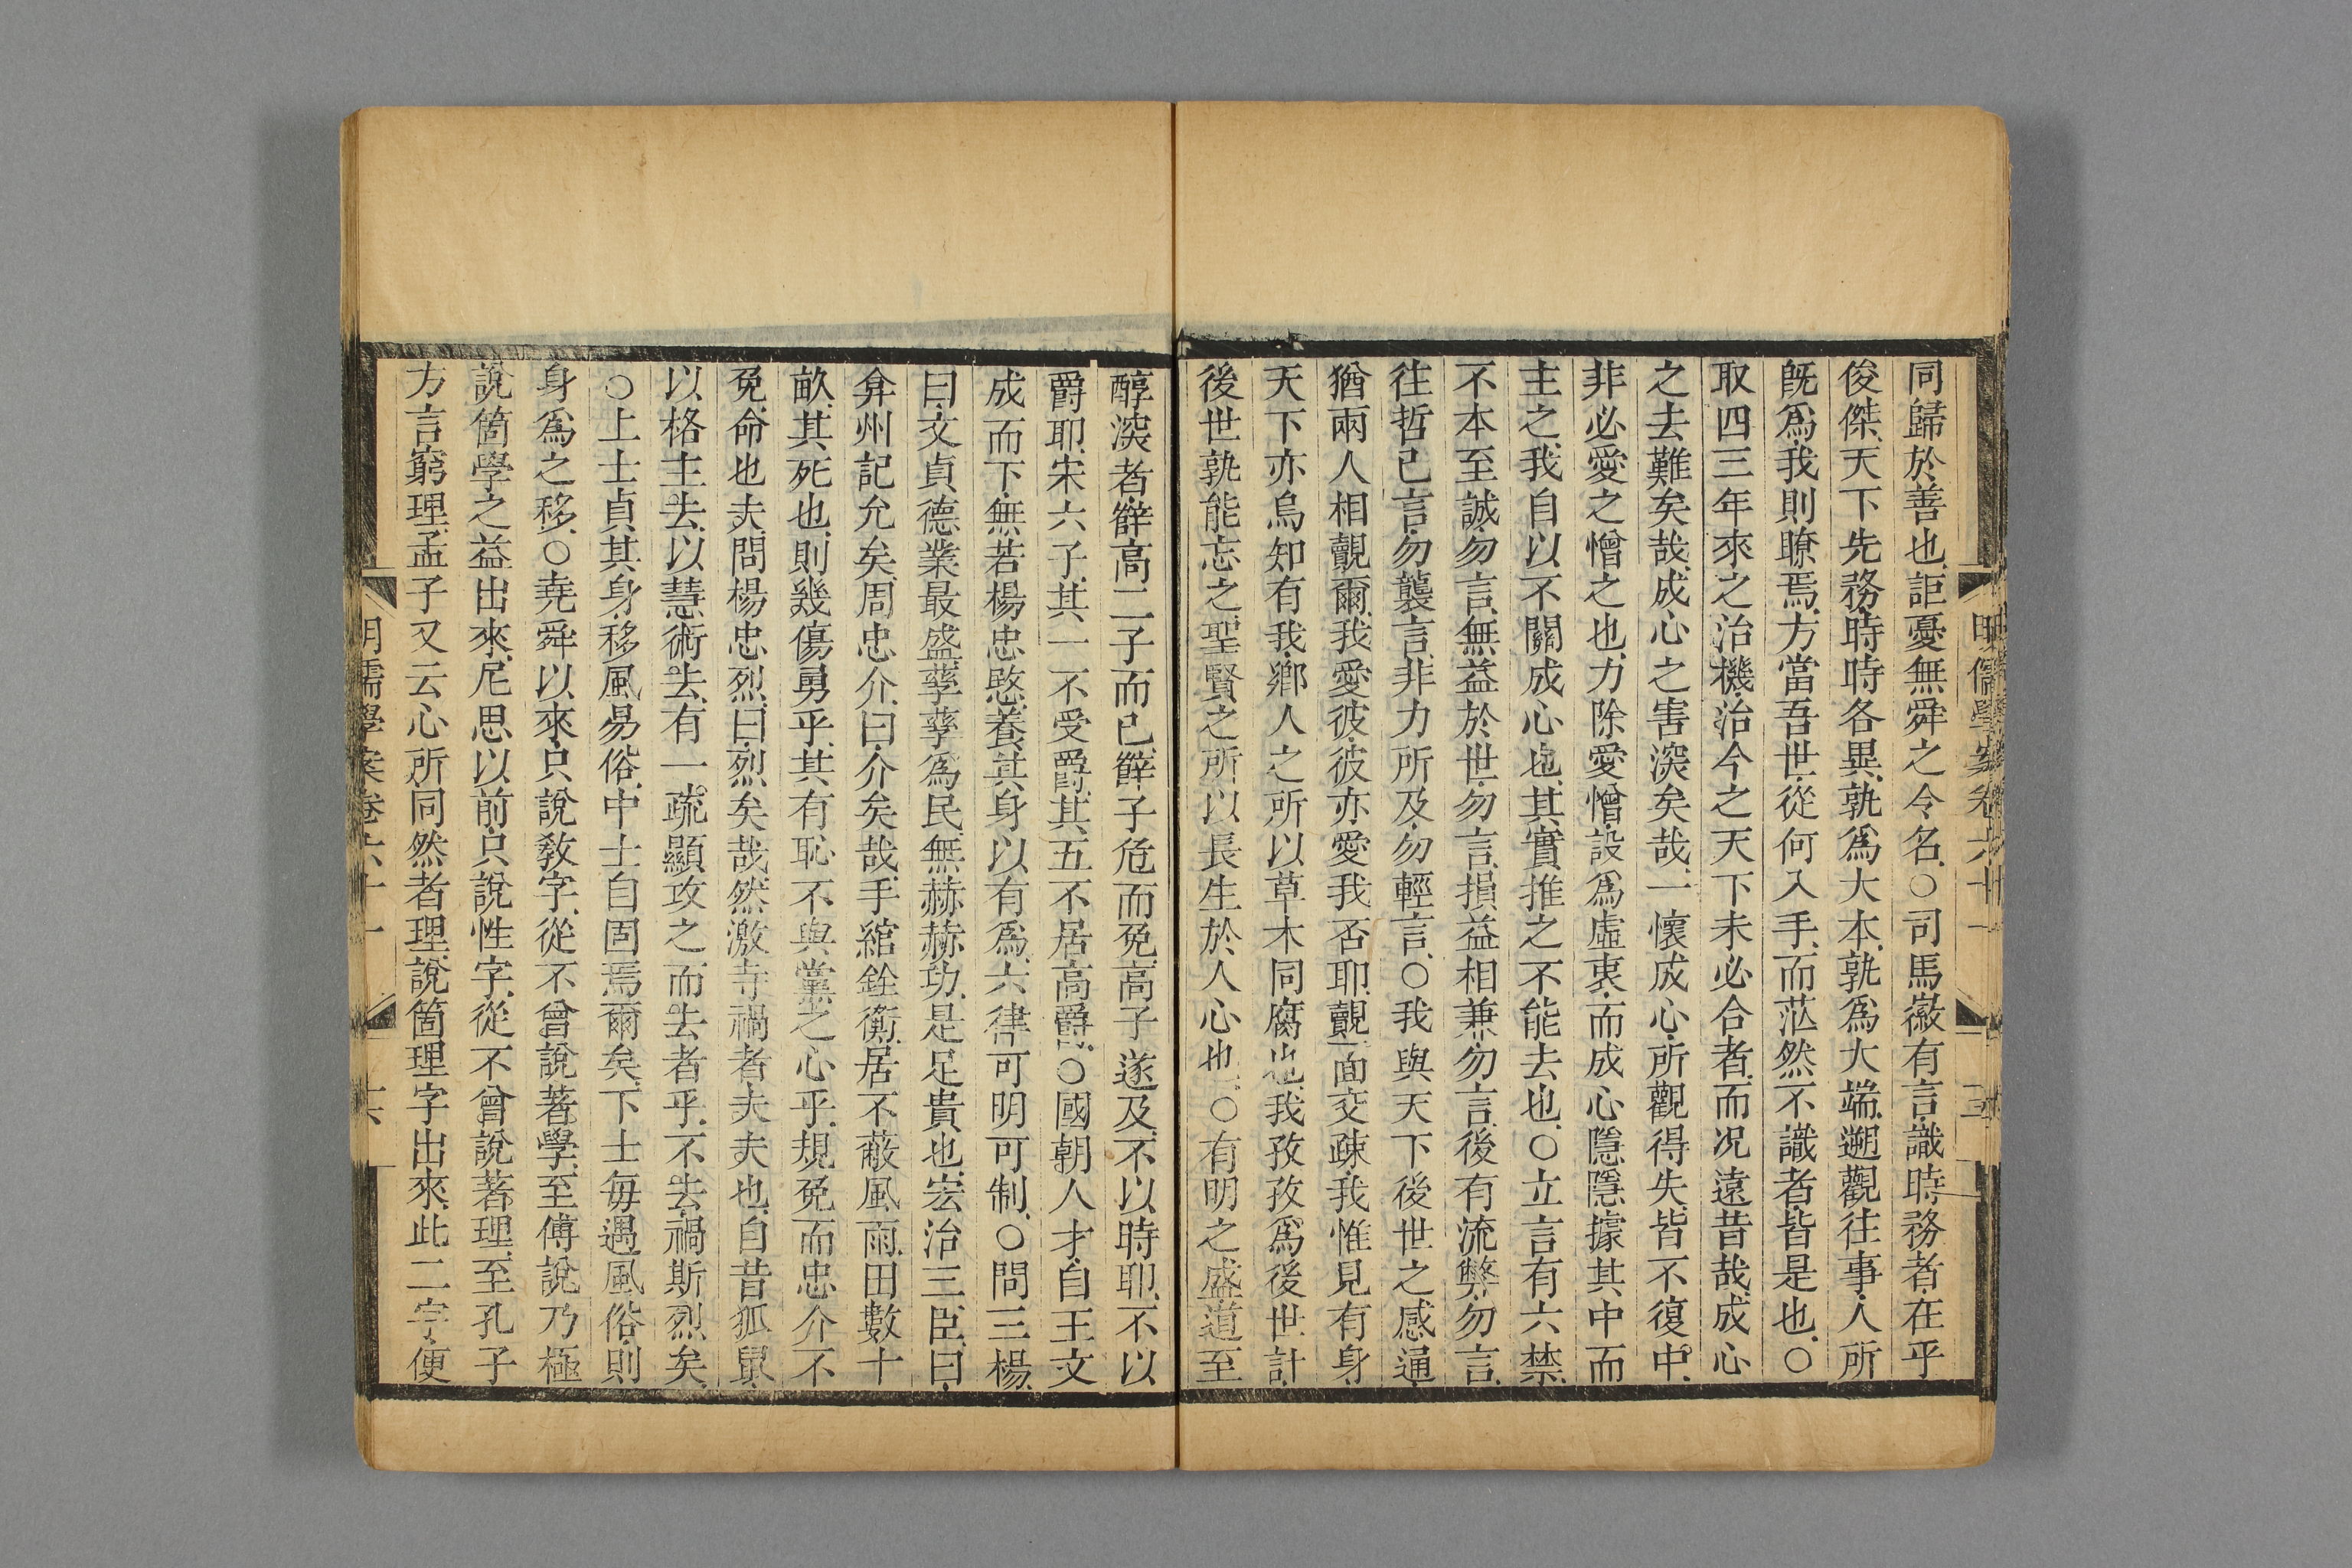 同歸於善也詎憂無舜之令名○司馬徽有言識時務者在乎
俊傑天下先務時時各異孰爲大本孰爲大端遡觀往事人所
旣爲我則瞭焉方當吾世從何入手而茫然不識者皆是也○
取四三年來之治機治今之天下未必合者而况遠昔哉成心
之去難矣哉成心之害深矣哉一懷成心所觀得失皆不復中
非必愛之憎之也力除愛憎設爲虛衷而成心隱隱據其中而
主之我自以不關成心也其實推之不能去也○立言有六禁
不本至誠勿言無益於世勿言損益相兼勿言後有流弊勿言
往哲已言勿襲言非力所及勿輕言○我與天下後世之感通
猶兩人相覿爾我愛彼彼亦愛我否耶覿面交疎我惟見有身
天下亦烏知有我鄉人之所以草木同腐也我孜孜爲後世計
後世孰能忘之聖賢之所以長生於人心也○有明之盛道至
醇深者薛高二子而已薛子危而免高子遂及不以時耶不以
爵耶宋六子其一不受爵其五不居高爵○國朝人才自王文
成而下無若楊忠愍養其身以有爲六律可明可制○問三楊
曰文貞德業最盛孳孳爲民無赫赫功是足貴也宏治三臣曰
弇州記允矣周忠介曰介矣哉手綰銓衡居不蔽風雨田數十
畝其死也則幾傷勇乎其有恥不與黨之心乎規免而忠介不
免命也夫問楊忠烈曰烈矣哉然激寺禍者夫夫也自昔狐鼠
以格主去以慧術去有一疏顯攻之而去者乎不去禍斯烈矣
○上士貞其身移風易俗中士自固焉爾矣下士每遇風俗則
身爲之移○堯舜以來只說敎字從不曾說著學至傅說乃極
說箇學之益出來尼思以前只說性字從不曾說著理至孔子
方言窮理孟子又云心所同然者理說箇理字出來此二字便
明儒學案卷六十一